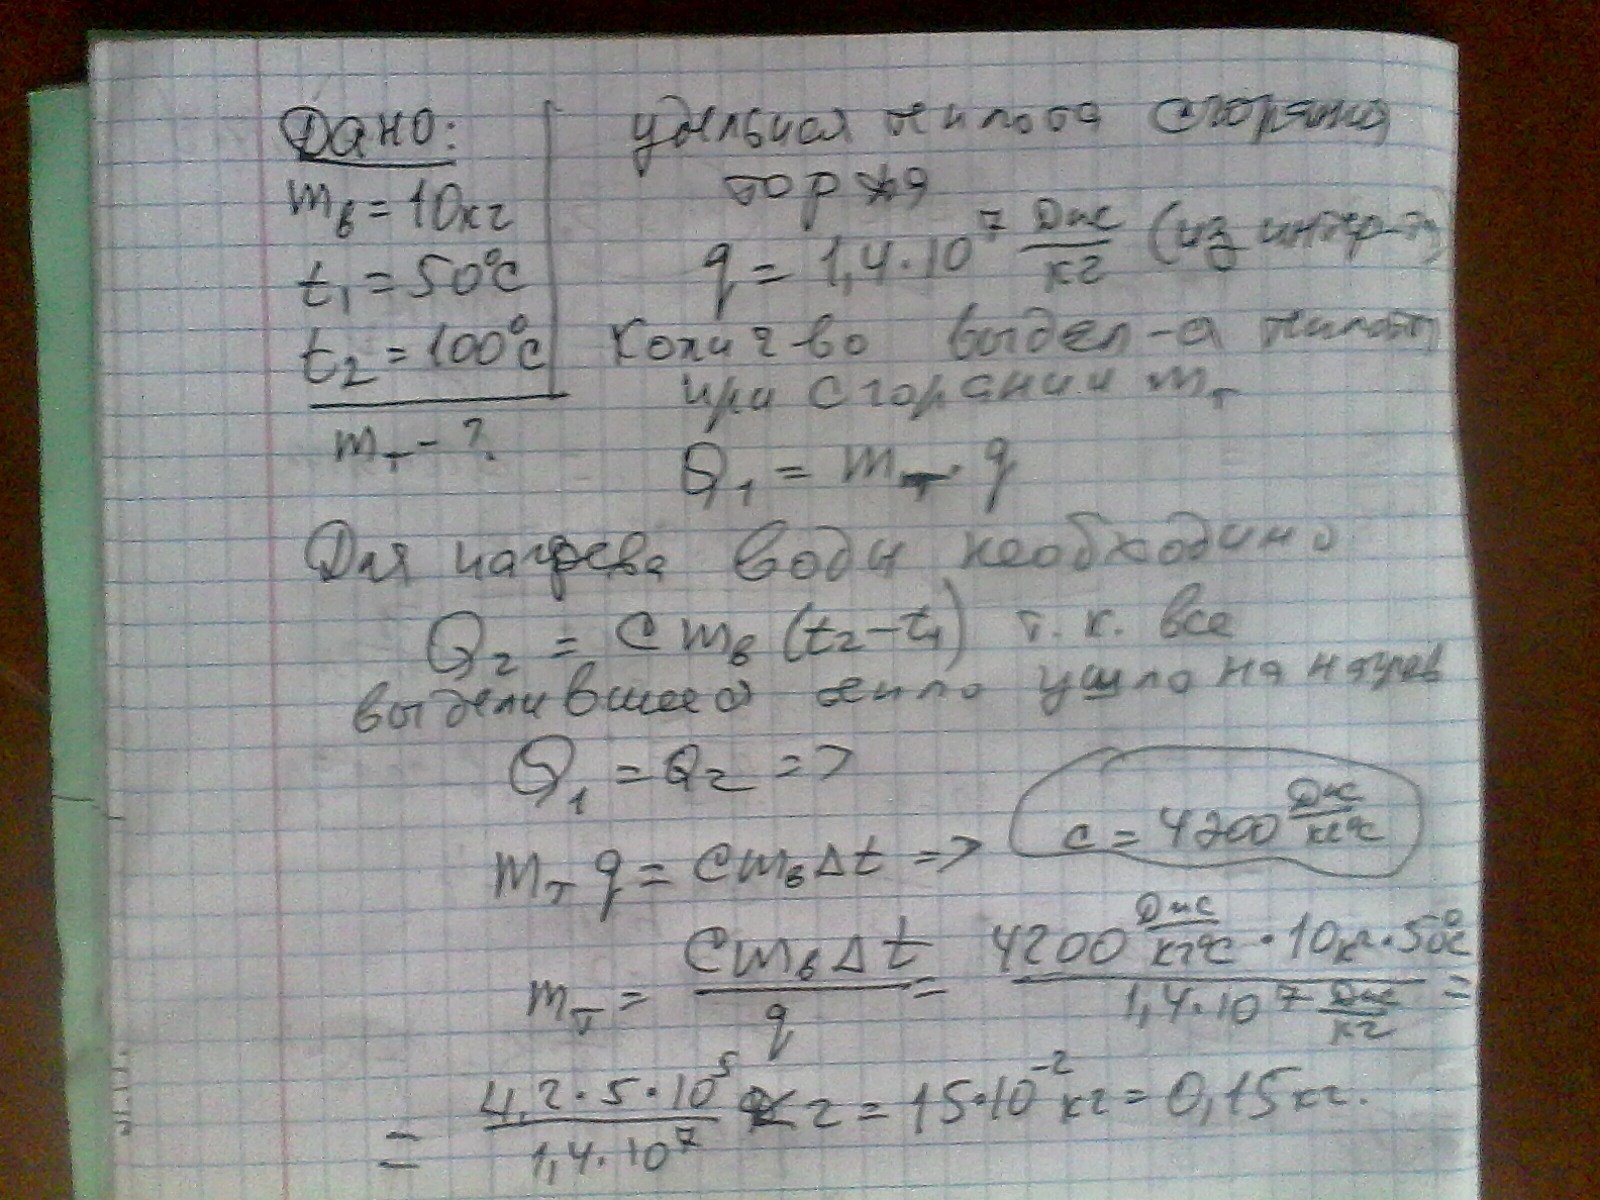 Дано:
m_в = 10кг
t₁ = 50°С
t₂ = 100°С
m_т - ?
удельная теплота сгорания
торфа
q = 1,4·10⁷ Дж/кг (из интер-та)
Колич во выдел-я теплоты
при сгорании m_т
Q₁ = m_т·q
Для нагрева воды необходимо
Q₂ = Cm_в(t₂-t₁) т.к. все
выделившееся тепло ушло на нагрев
Q₁ = Q₂ =>
m_т q = Cm_вΔt => c = 4200 Дж/кг°С
m_т = Cm_вΔt/q = 4200 Дж/кг°С · 10кг · 50°С / 1,4·10⁷ Дж/кг =
= 4,2·5·10⁵/1,4·10⁷ кг = 15·10⁻² кг = 0,15кг.